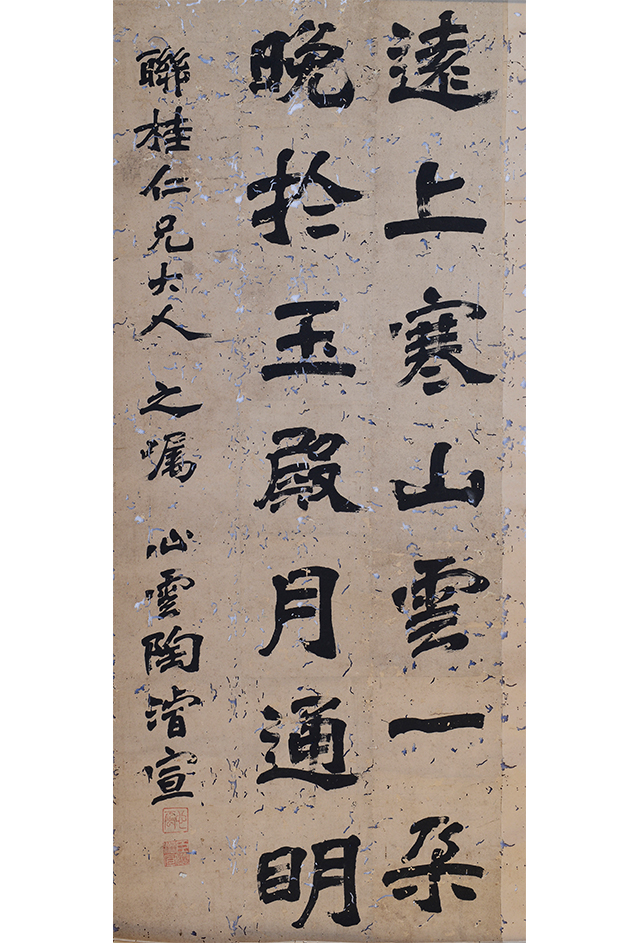 遠上寒山雲一朶
晚於玉殿月通明
聯桂仁兄大人之囑心雲陶濬宣